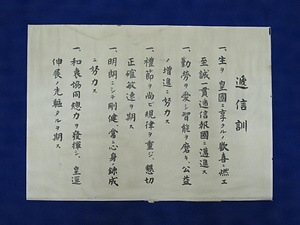 逓信訓
一、生ヲ皇國ニ享クルノ歓喜ニ燃エ
至誠一貫通信報國ニ邁進ス
一、勤勞ヲ愛シ智能ヲ磨キ公益
ノ増進ニ努力ス
一、禮節ヲ尚ビ規律ヲ重ジ懇切
正確敏速ヲ期ス
一、明朗ニシテ剛健常ニ心身ノ錬成
ニ努力ス
一、和衷協同總力ヲ發揮シ皇運
伸展ノ先駆タルヲ期ス